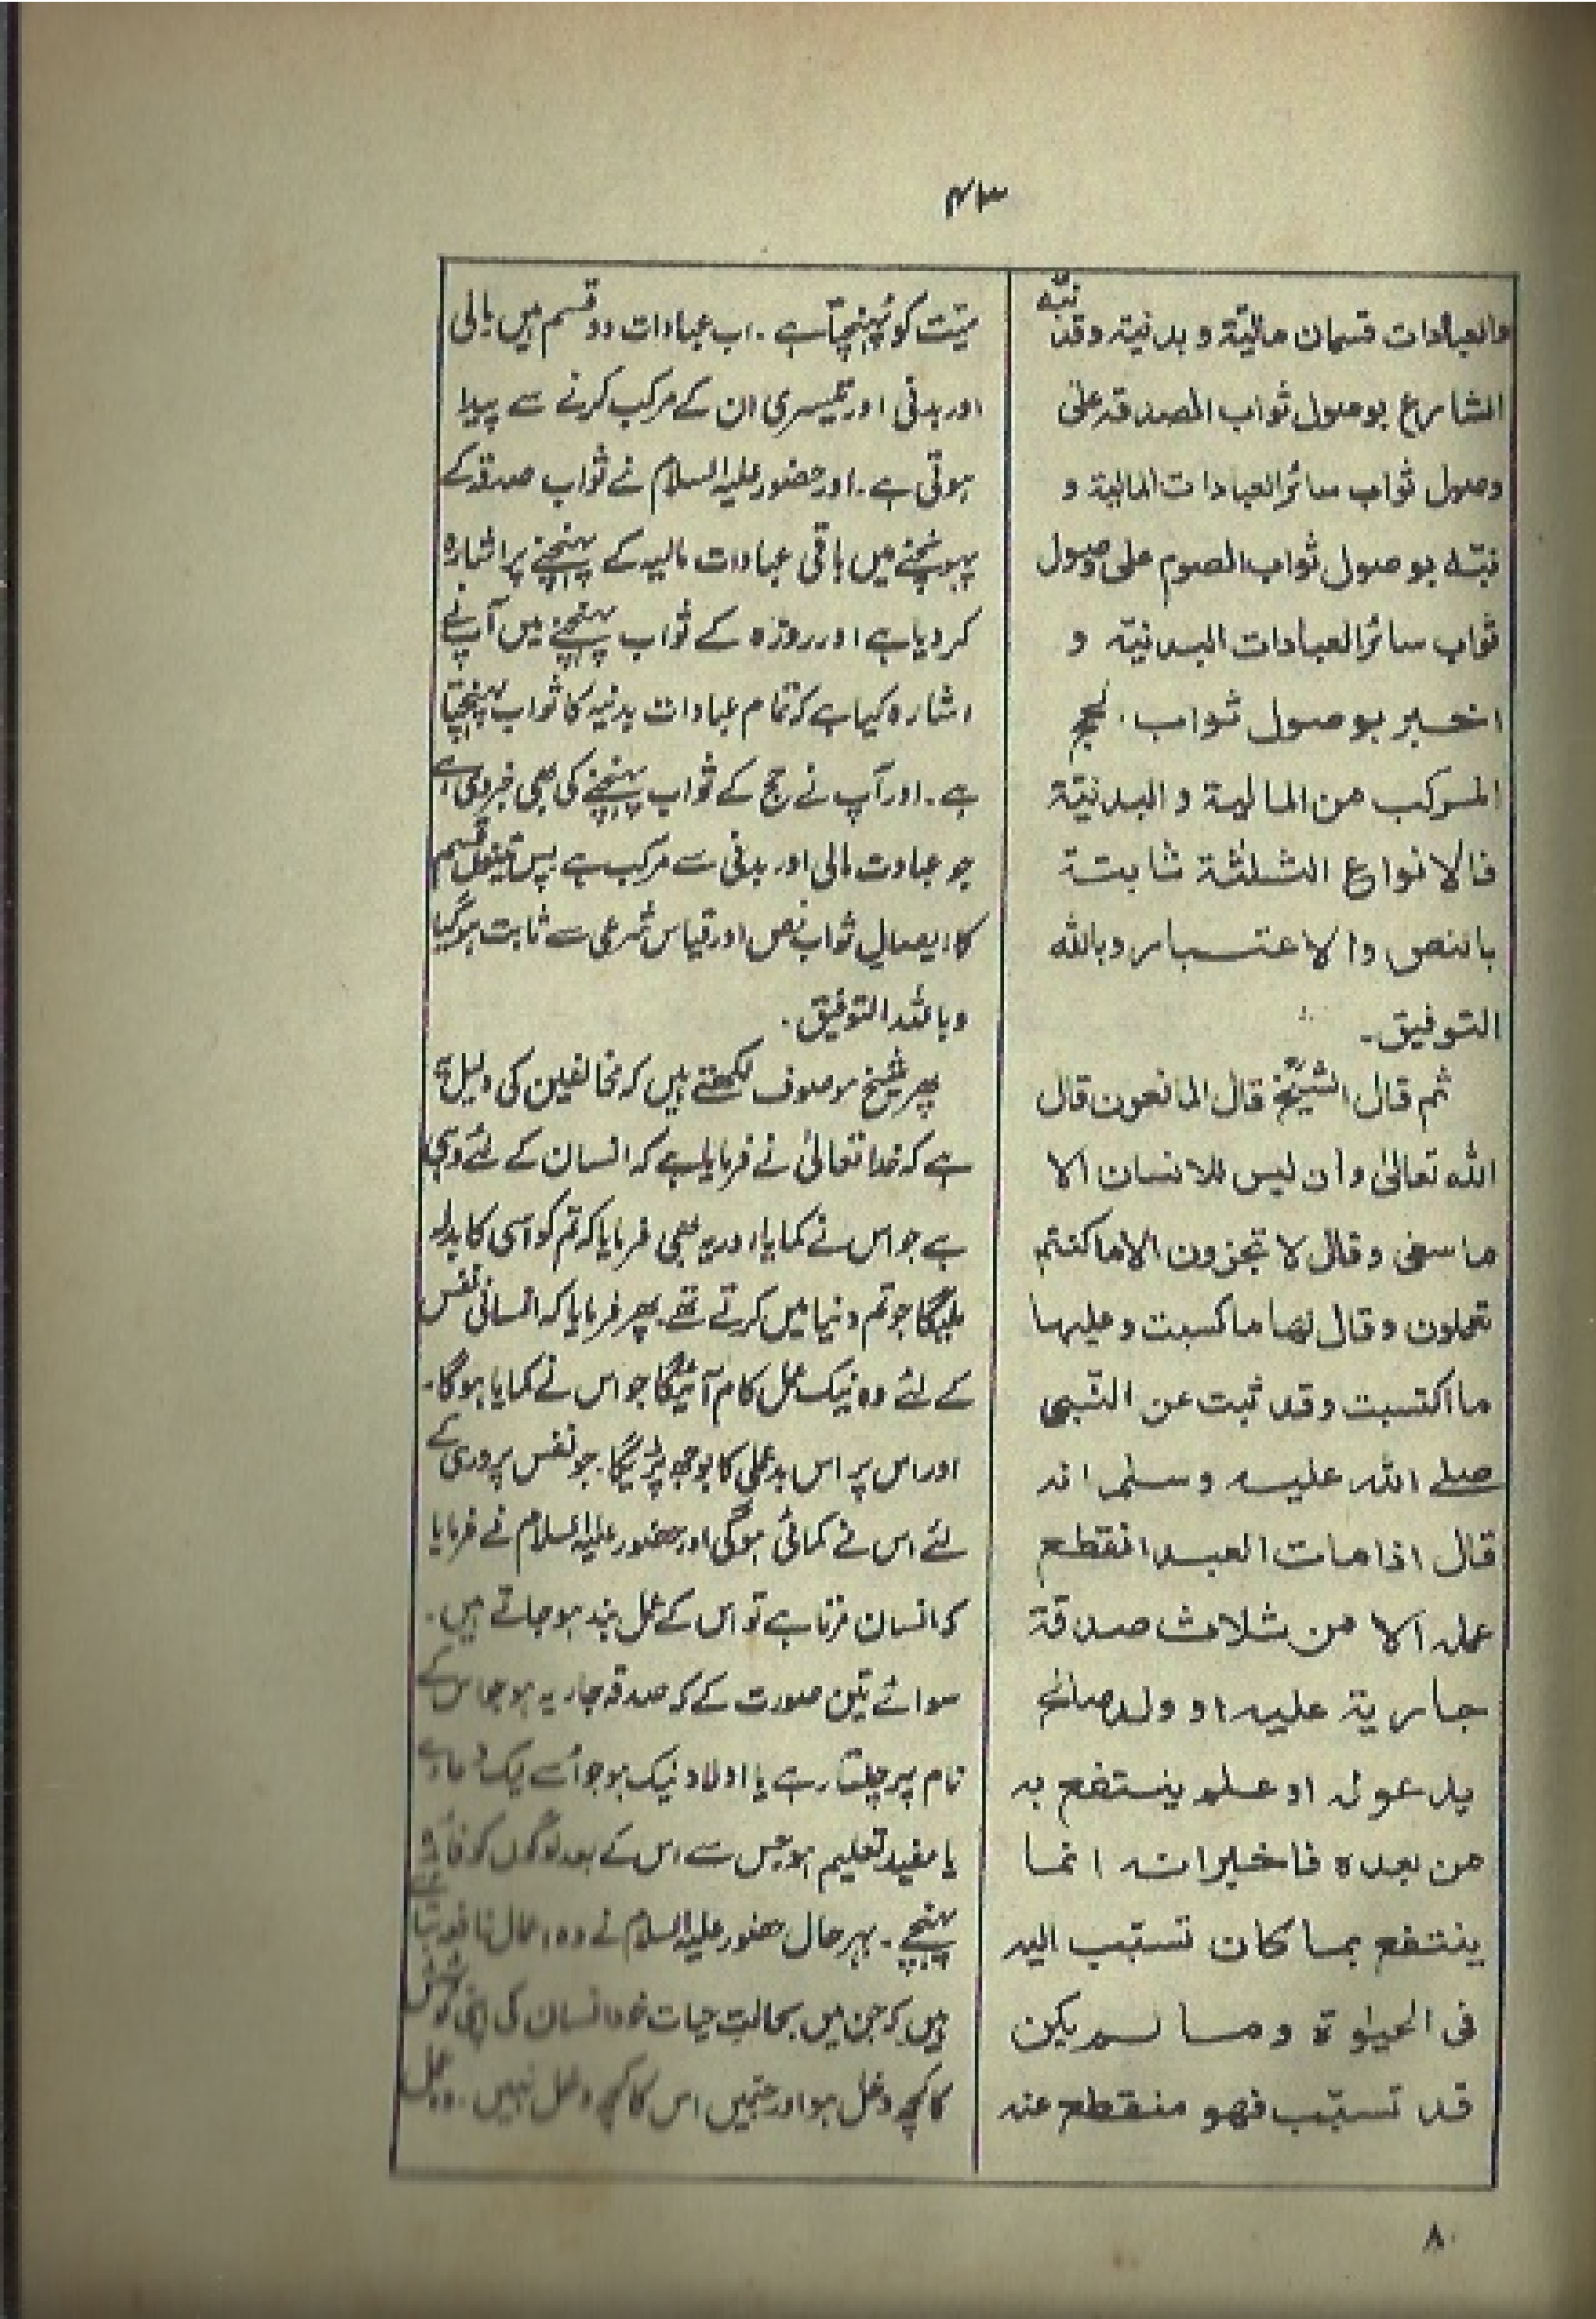 ۴۳
والعبادات قسمان مالیة و بدنیة وقد نبّه
الشارع بوصول ثواب الصدقة علیٰ
وصول ثواب سائر العبادات المالیة و
نبّه بوصول ثواب الصوم علیٰ وصول
ثواب سائر العبادات البدنیة و
اخبر بوصول ثواب الحج
المرکب من المالیة و البدنیّة
فالانواع الثلٰثة ثابتة
بالنص والاعتبار وبالله
التوفیق۔
ثم قال الشیخؒ قال المانعون قال
الله تعالیٰ وان لیس للانسان الا
ما سعیٰ وقال لا تجزون الا ما کنتم
تعملون وقال لها ما کسبت وعلیها
ما اکتسبت وقد ثبت عن النّبی
صلے الله علیه وسلم انه
قال اذا مات العبد انقطع
عمله الا من ثلاث صدقة
جاریة علیه او ولد صالح
یدعوله او علم ینتفع به
من بعده فاخبر انه انما
ینتفع بما کان تسبّب الیه
فی الحیٰوة وما لم یکن
قد تسبّب فهو منقطع عنه
میّت کو پہنچتا ہے۔ اب عبادات دو قسم ہیں مالی
اور بدنی اور تیسری ان کے مرکب کرنے سے پیدا
ہوتی ہے۔ اور حضور علیہ السلام نے ثواب صدقہ کے
پہونچنے میں باقی عبادات مالیہ کے پہنچنے پر اشارہ
کردیا ہے اور روزہ کے ثواب پہنچنے میں آپ نے
اشارہ کیا ہے کہ تمام عبادات بدنیہ کا ثواب پہنچتا
ہے۔ اور آپ نے حج کے ثواب پہنچنے کی بھی خبر دی ہے
جو عبادت مالی اور بدنی سے مرکب ہے پس تینوں قسم
کا ایصال ثواب نص اور قیاس شرعی سے ثابت ہوگیا
وباللہ التوفیق۔
پھر شیخ موصوف لکھتے ہیں کہ مخالفین کی دلیل یہ
ہے کہ خدا تعالیٰ نے فرمایا ہے کہ انسان کے لئے وہی
ہے جو اس نے کمایا، اور یہ بھی فرمایا کہ تم کو اسی کا بدلہ
ملیگا جو تم دنیا میں کرتے تھے۔ پھر فرمایا کہ انسانی نفس
کے لئے وہ نیک عمل کام آئیگا جو اس نے کمایا ہوگا۔
اور اس پر اس بدعملی کا بوجھ پڑیگا۔ جو نفس پروری کے
لئے اس نے کمائی ہوگی اور حضور علیہ السلام نے فرمایا
کہ انسان مرتا ہے تو اس کے عمل بند ہوجاتے ہیں۔
سوائے تین صورت کے کہ صدقہ جاریہ ہو جو اس کے
نام پر چلتا رہے یا اولاد نیک ہو جو اُسے نیک دعا دے
یا مفید تعلیم ہو جس سے اس کے بعد لوگوں کو فائدہ
پہنچے۔ بہرحال حضور علیہ السلام نے وہ اعمال نافع بتائے
ہیں کہ جن میں بحالت حیات خود انسان کی اپنی کوشش
کا کچھ دخل ہو اور جنہیں اس کا کچھ دخل نہیں۔ وہ عمل
۸